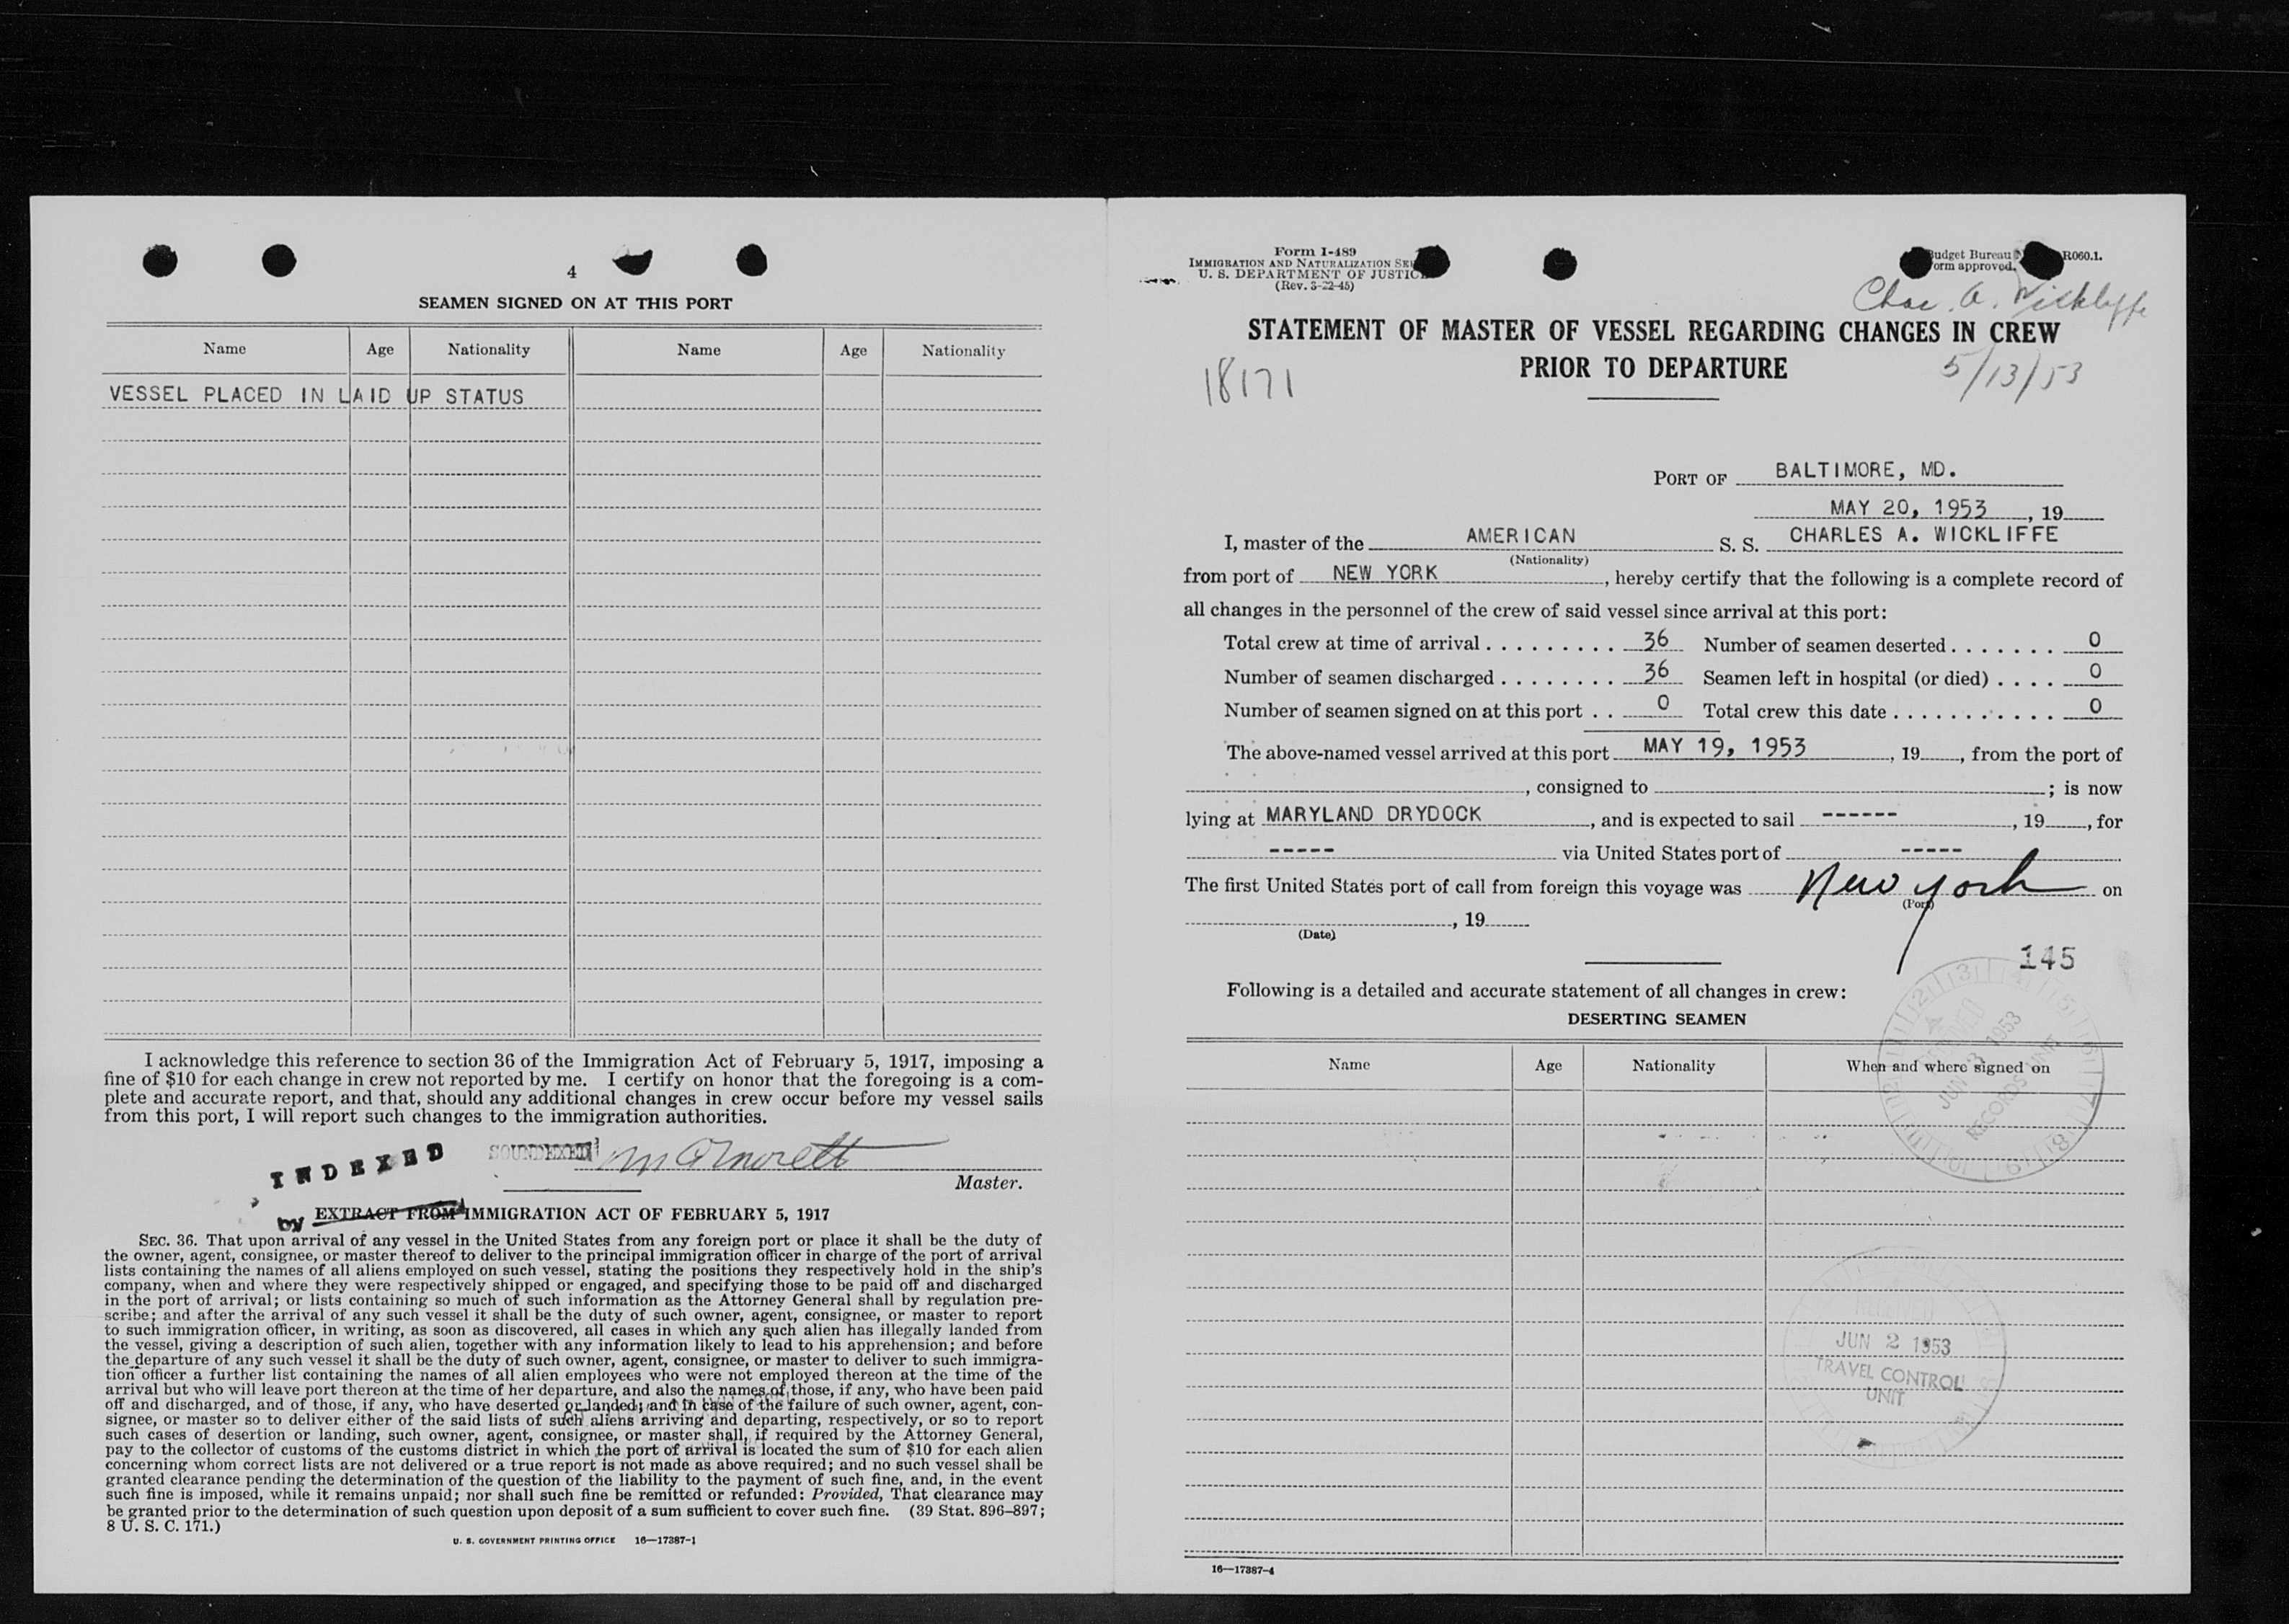 4
SEAMEN SIGNED ON AT THIS PORT
Name Age Nationality Name Age Nationality
VESSEL PLACED IN LAID UP STATUS
I acknowledge this reference to section 36 of the Immigration Act of February 5, 1917, imposing a
fine of $10 for each change in crew not reported by me. I certify on honor that the foregoing is a com-
plete and accurate report, and that, should any additional changes in crew occur before my vessel sails
from this port, I will report such changes to the immigration authorities.
INDEXED SOUNDEXED
Master.
by EXTRACT FROM IMMIGRATION ACT OF FEBRUARY 5, 1917
SEC. 36. That upon arrival of any vessel in the United States from any foreign port or place it shall be the duty of
the owner, agent, consignee, or master thereof to deliver to the principal immigration officer in charge of the port of arrival
lists containing the names of all aliens employed on such vessel, stating the positions they respectively hold in the ship's
company, when and where they were respectively shipped or engaged, and specifying those to be paid off and discharged
in the port of arrival; or lists containing so much of such information as the Attorney General shall by regulation pre-
scribe; and after the arrival of any such vessel it shall be the duty of such owner, agent, consignee, or master to report
to such immigration officer, in writing, as soon as discovered, all cases in which any such alien has illegally landed from
the vessel, giving a description of such alien, together with any information likely to lead to his apprehension; and before
the departure of any such vessel it shall be the duty of such owner, agent, consignee, or master to deliver to such immigra-
tion officer a further list containing the names of all alien employees who were not employed thereon at the time of the
arrival but who will leave port thereon at the time of her departure, and also the names of those, if any, who have been paid
off and discharged, and of those, if any, who have deserted or landed; and in case of the failure of such owner, agent, con-
signee, or master so to deliver either of the said lists of such aliens arriving and departing, respectively, or so to report
such cases of desertion or landing, such owner, agent, consignee, or master shall, if required by the Attorney General,
pay to the collector of customs of the customs district in which the port of arrival is located the sum of $10 for each alien
concerning whom correct lists are not delivered or a true report is not made as above required; and no such vessel shall be
granted clearance pending the determination of the question of the liability to the payment of such fine, and, in the event
such fine is imposed, while it remains unpaid; nor shall such fine be remitted or refunded: Provided, That clearance may
be granted prior to the determination of such question upon deposit of a sum sufficient to cover such fine. (39 Stat. 896–897;
8 U. S. C. 171.)
U. S. GOVERNMENT PRINTING OFFICE 16—17387-1
Form I-489
IMMIGRATION AND NATURALIZATION
U. S. DEPARTMENT OF JUSTIC
(Rev. 3-22-45)
Budget Bureau R060.1.
orm approved.
Chas. A. Wickliffe
STATEMENT OF MASTER OF VESSEL REGARDING CHANGES IN CREW
PRIOR TO DEPARTURE
18171
5/13/53
PORT OF BALTIMORE, MD.
MAY 20, 1953, 19
I, master of the AMERICAN S. S. CHARLES A. WICKLIFFE
(Nationality)
from port of NEW YORK, hereby certify that the following is a complete record of
all changes in the personnel of the crew of said vessel since arrival at this port:
Total crew at time of arrival . . . . . . . . . 36 Number of seamen deserted . . . . . . . 0
Number of seamen discharged . . . . . . . . 36 Seamen left in hospital (or died) . . . . 0
Number of seamen signed on at this port . . 0 Total crew this date . . . . . . . . . . . 0
The above-named vessel arrived at this port MAY 19, 1953, 19, from the port of
, consigned to ; is now
lying at MARYLAND DRYDOCK, and is expected to sail ------, 19, for
----- via United States port of -----
The first United States port of call from foreign this voyage was New York on
(Port)
, 19
(Date)
145
Following is a detailed and accurate statement of all changes in crew:
DESERTING SEAMEN
Name Age Nationality When and where signed on
JUN 3 1953
RECORDS
RECEIVED
JUN 2 1953
TRAVEL CONTROL
UNIT
16—17387-4